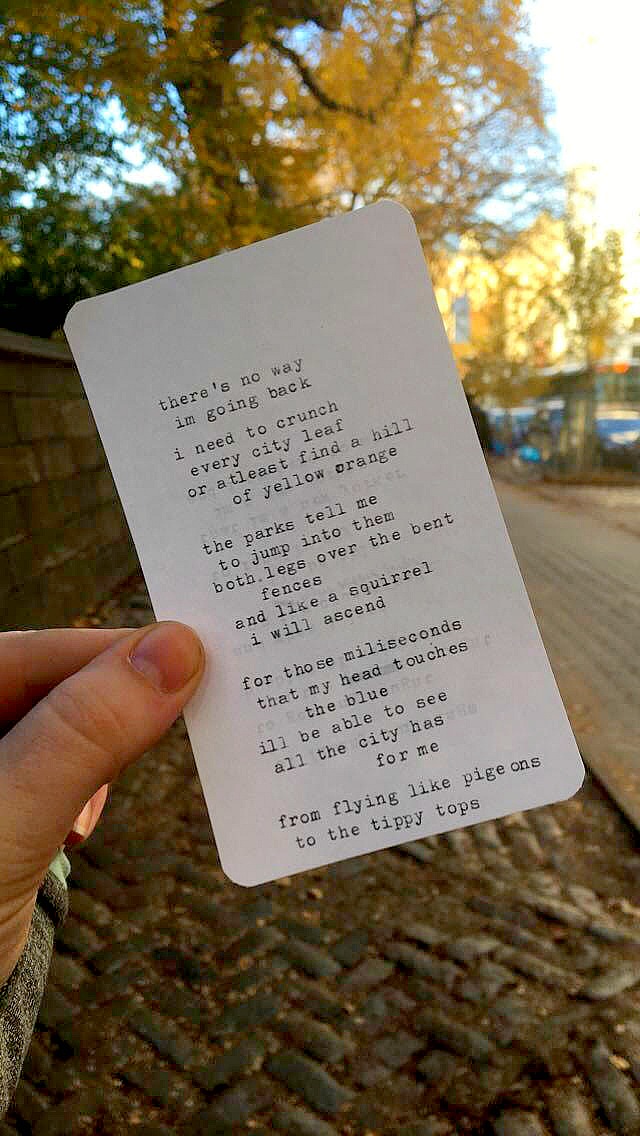 there's no way
im going back
i need to crunch
every city leaf
or atleast find a hill
of yellow orange
the parks tell me
to jump into them
both.legs over the bent
fences
and like a squirrel
i will ascend
for those miliseconds
that my head touches
the blue
ill be able to see
all the city has
for me
from flying like pigeons
to the tippy tops